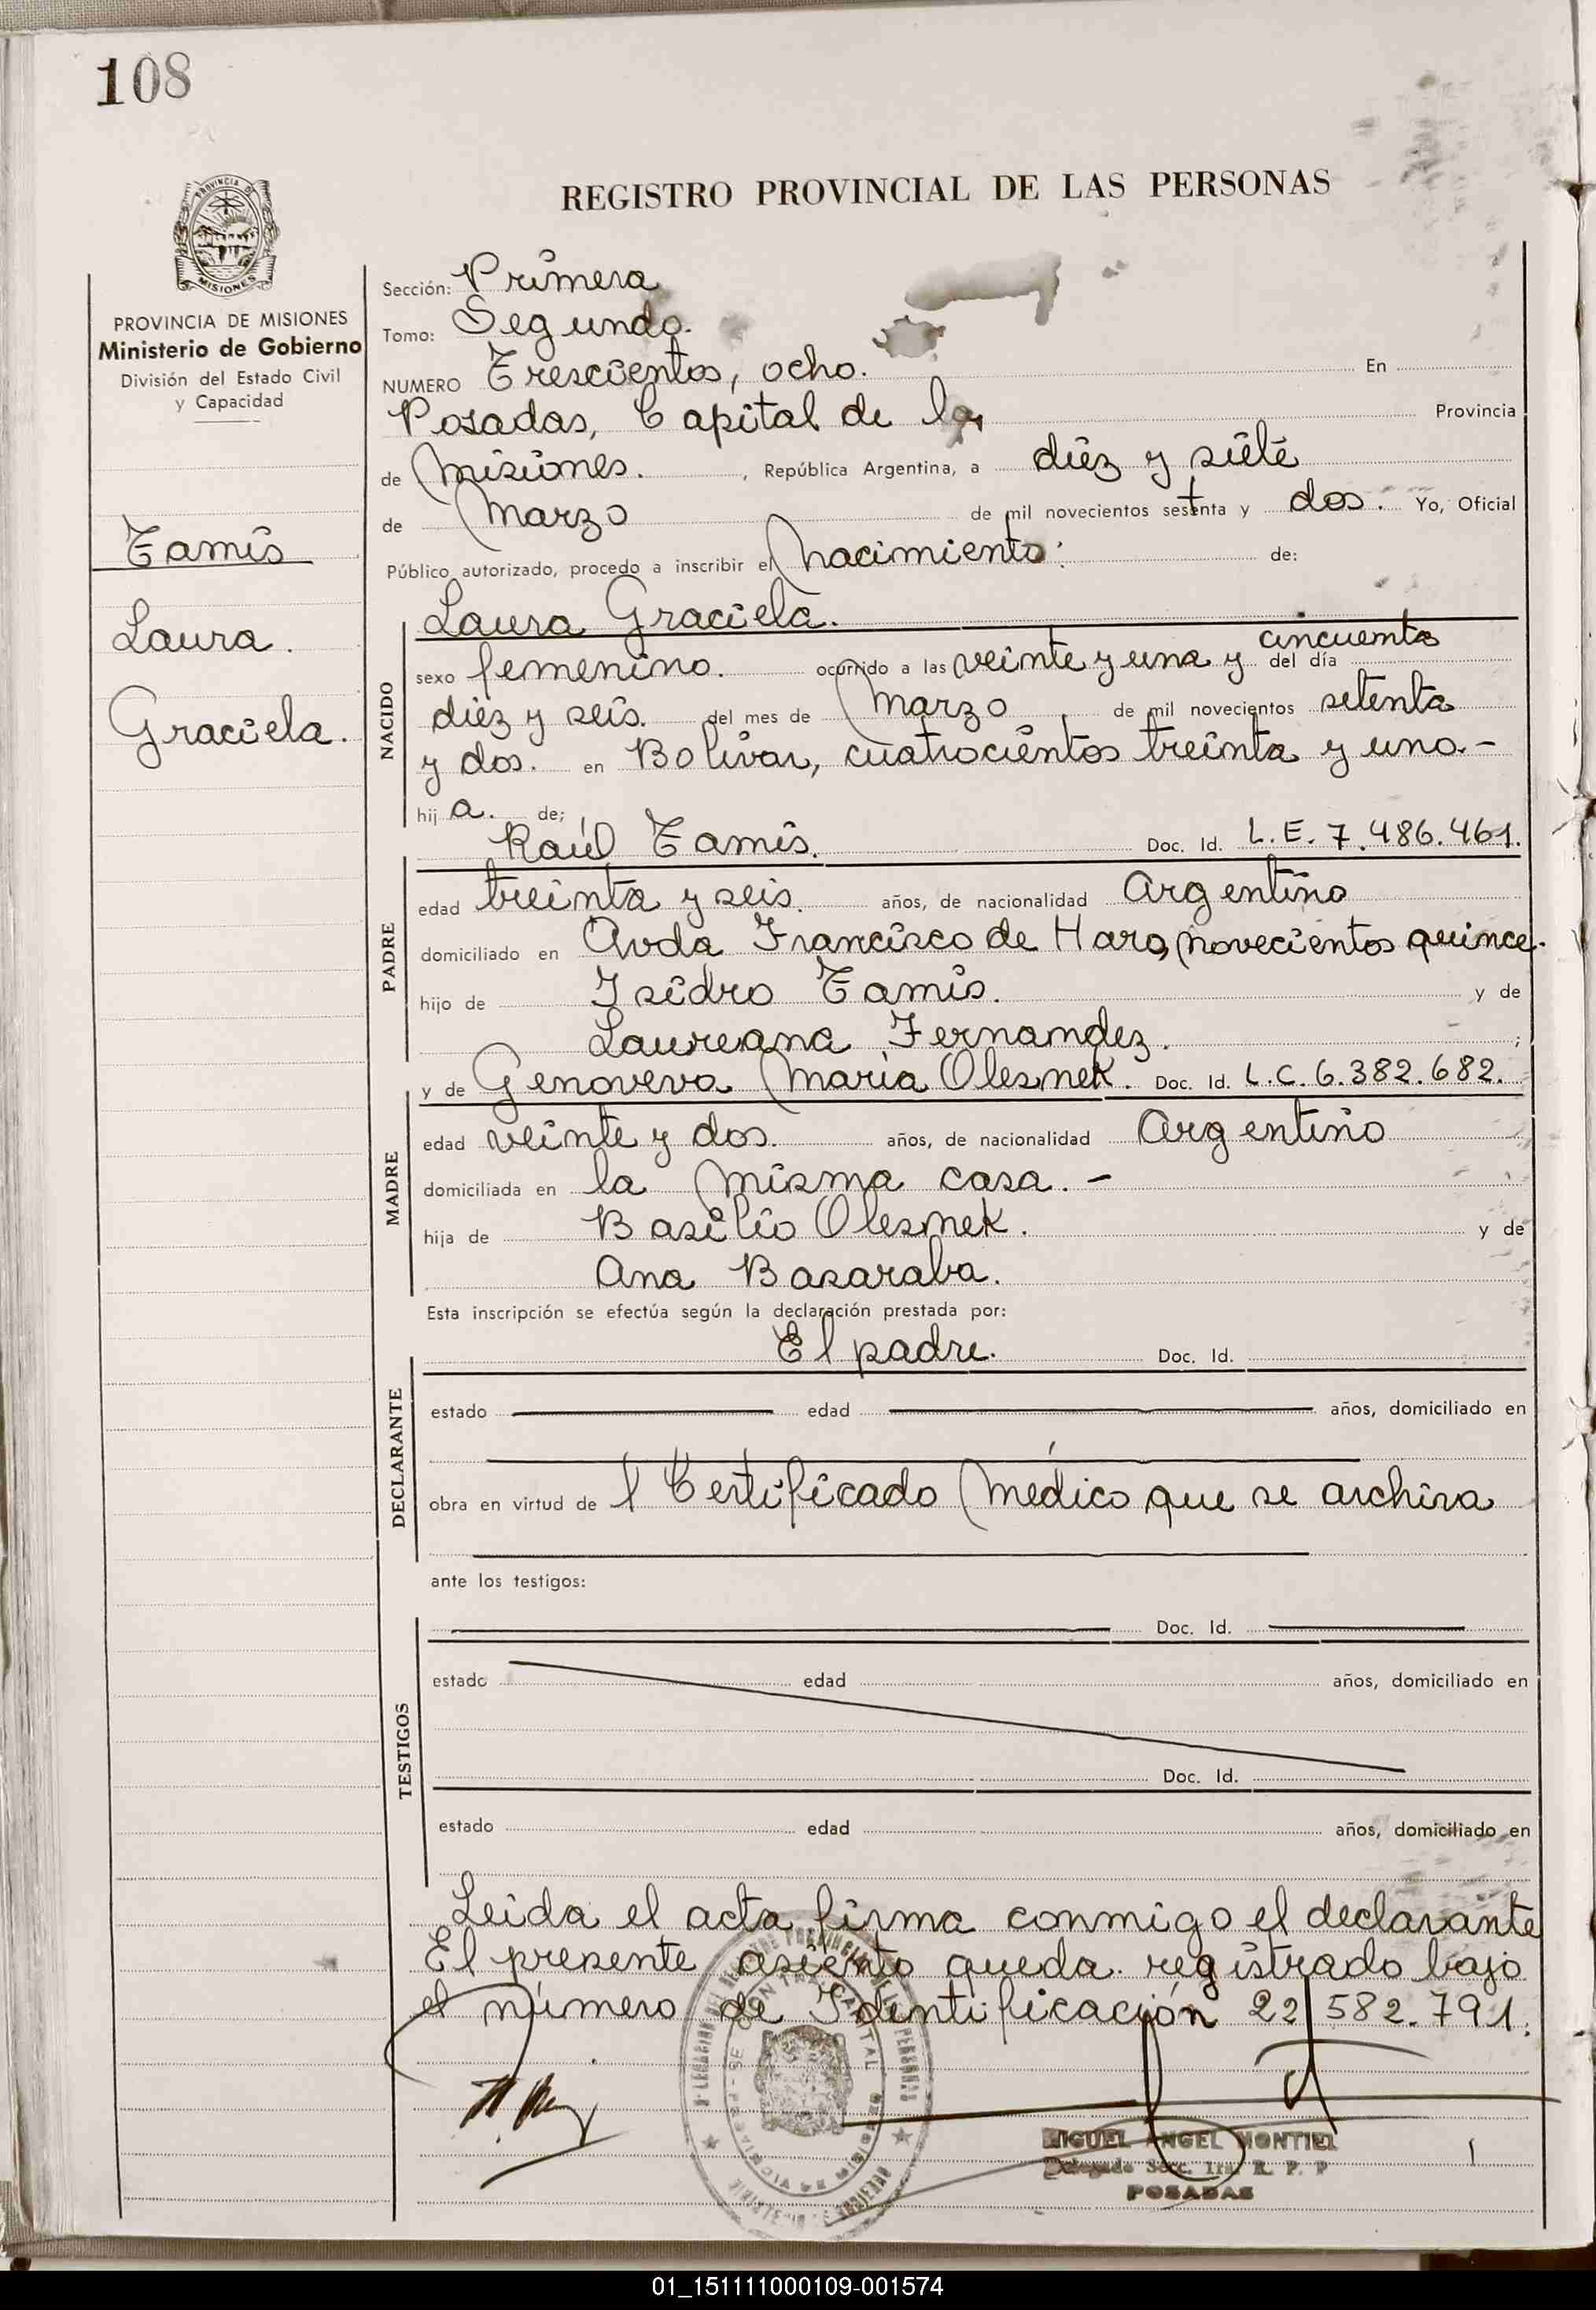 108
PROVINCIA DE
MISIONES
PROVINCIA DE MISIONES
Ministerio de Gobierno
División del Estado Civil
y Capacidad
Tamis
Laura.
Graciela.
REGISTRO PROVINCIAL DE LAS PERSONAS
Sección: Primera
Tomo: Segundo.
NUMERO Trescientos, ocho. En
Posadas, Capital de la Provincia
de Misiones. , República Argentina, a diez y siete
de Marzo de mil novecientos setenta y dos. Yo, Oficial
Público autorizado, procedo a inscribir el Nacimiento: de:
Laura Graciela.
NACIDO
sexo femenino. ocurrido a las veinte y una y cincuenta del día
diez y seis. del mes de Marzo, de mil novecientos setenta
y dos. en Bolívar, cuatrocientos treinta y uno.-
hij a. de;
Raúl Tamis. Doc. Id. L.E. 7.486.461.
PADRE
edad treinta y seis. años, de nacionalidad Argentino
domiciliado en Avda Francisco de Haro, novecientos quince.
hijo de Isidro Tamis. y de
Laureana Fernandez. ;
y de Genoveva María Olesnek. Doc. Id. L.C. 6.382.682.
MADRE
edad veinte y dos. años, de nacionalidad Argentino
domiciliada en la misma casa. -
hija de Basilio Olesnek. y de
Ana Basaraba.
Esta inscripción se efectúa según la declaración prestada por:
El padre. Doc. Id.
DECLARANTE
estado edad años, domiciliado en
obra en virtud de l Certificado Médico que se archiva
ante los testigos:
Doc. Id.
TESTIGOS
estado edad años, domiciliado en
Doc. Id.
estado edad años, domiciliado en
Leida el acta firma conmigo el declarante
El presente asiento queda registrado bajo
el número de Identificación 22.582.791.
MIGUEL ANGEL MONTIEL
Delegado Secc. 1ra. R. P. P
POSADAS
01_151111000109-001574